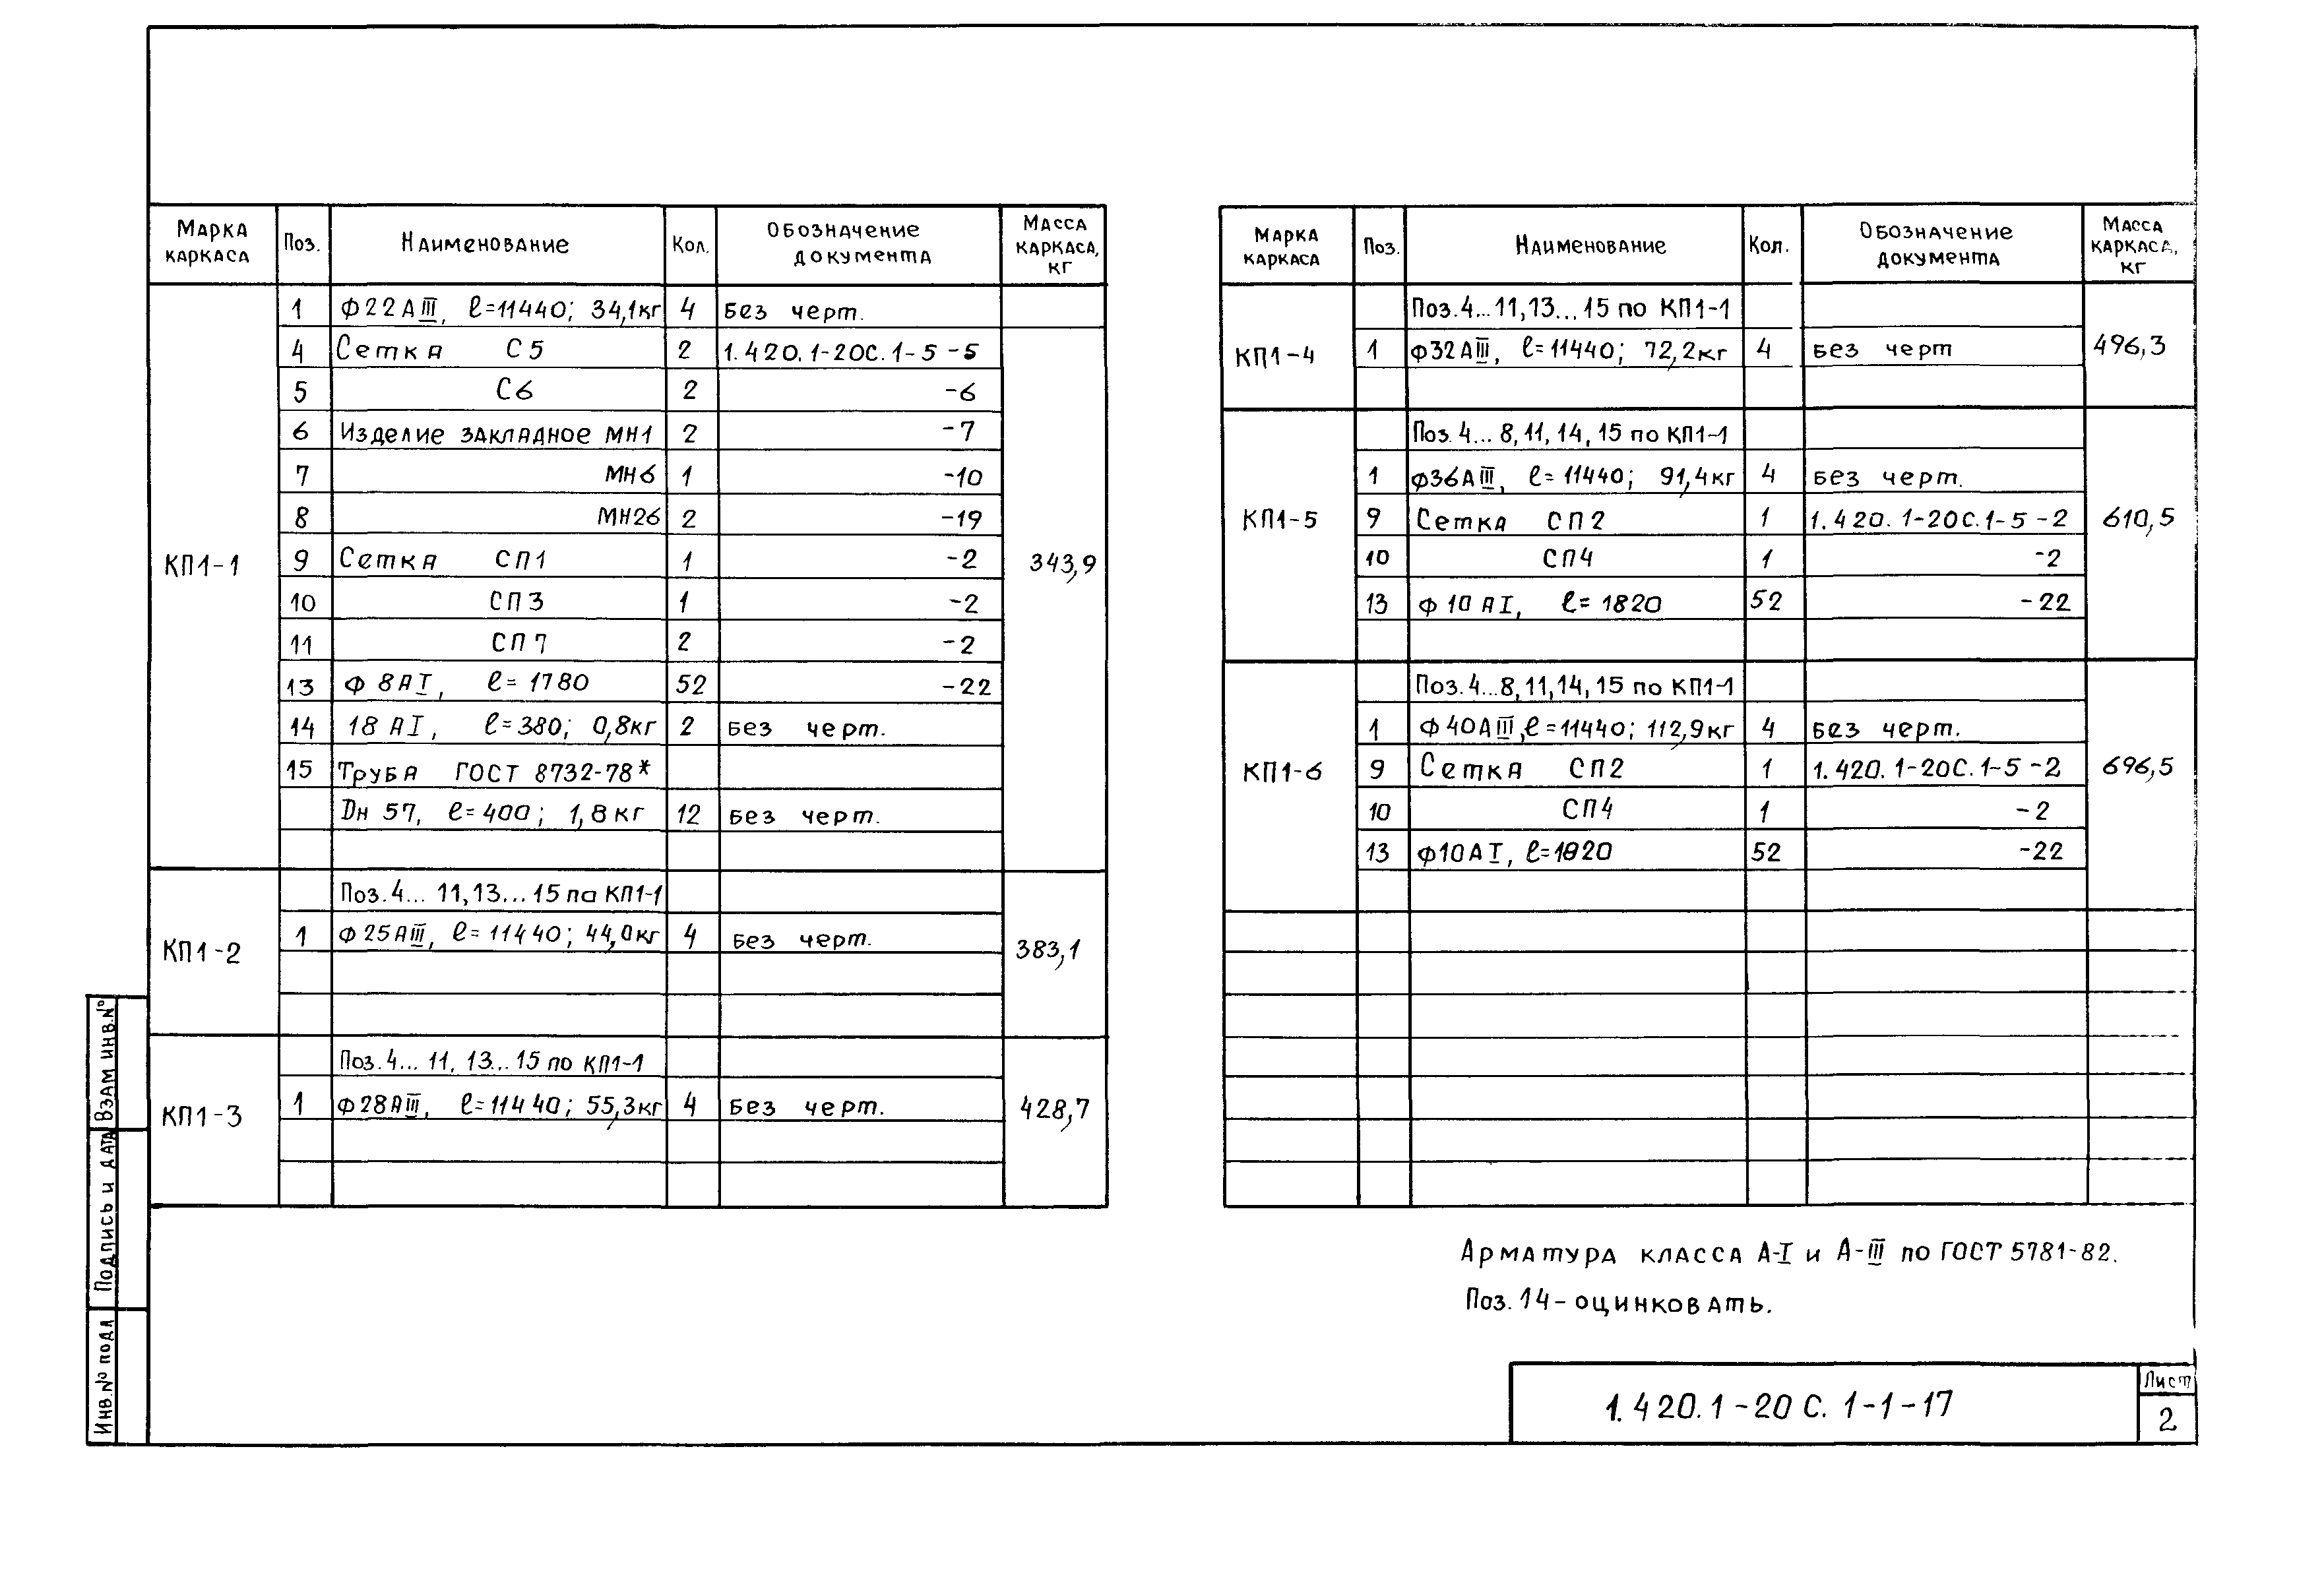 Марка каркаса | Поз. | Наименование | Кол. | Обозначение документа | Масса каркаса, кг
КП1-1 | 1 | Ф22АIII, ℓ=11440; 34,1кг | 4 | Без черт. | 343,9
4 | Сетка С5 | 2 | 1.420.1-20С.1-5-5
5 | С6 | 2 | -6
6 | Изделие закладное МН1 | 2 | -7
7 | МН6 | 1 | -10
8 | МН26 | 2 | -19
9 | Сетка СП1 | 1 | -2
10 | СП3 | 1 | -2
11 | СП7 | 2 | -2
13 | Ф 8АI, ℓ=1780 | 52 | -22
14 | 18 АI, ℓ=380; 0,8кг | 2 | Без черт.
15 | Труба ГОСТ 8732-78*
Dн 57, ℓ=400; 1,8кг | 12 | Без черт.
КП1-2 | Поз.4...11,13...15 по КП1-1 | 383,1
1 | Ф25АIII, ℓ=11440; 44,0кг | 4 | Без черт.
КП1-3 | Поз.4...11,13...15 по КП1-1 | 428,7
1 | Ф28АIII, ℓ=11440; 55,3кг | 4 | Без черт.
Марка каркаса | Поз. | Наименование | Кол. | Обозначение документа | Масса каркаса, кг
КП1-4 | Поз.4...11,13...15 по КП1-1 | 496,3
1 | Ф32АIII, ℓ=11440; 72,2кг | 4 | Без черт
КП1-5 | Поз.4...8,11,14,15 по КП1-1 | 610,5
1 | Ф36АIII, ℓ=11440; 91,4кг | 4 | Без черт.
9 | Сетка СП2 | 1 | 1.420.1-20С.1-5-2
10 | СП4 | 1 | -2
13 | Ф10АI, ℓ=1820 | 52 | -22
КП1-6 | Поз.4...8,11,14,15 по КП1-1 | 696,5
1 | Ф40АIII, ℓ=11440; 112,9кг | 4 | Без черт.
9 | Сетка СП2 | 1 | 1.420.1-20С.1-5-2
10 | СП4 | 1 | -2
13 | Ф10АI, ℓ=1820 | 52 | -22
Арматура класса А-I и А-III по ГОСТ 5781-82.
Поз.14-оцинковать.
1.420.1-20С.1-1-17
Лист
2
Взам инв.№
Подпись и дата
Инв.№ подл